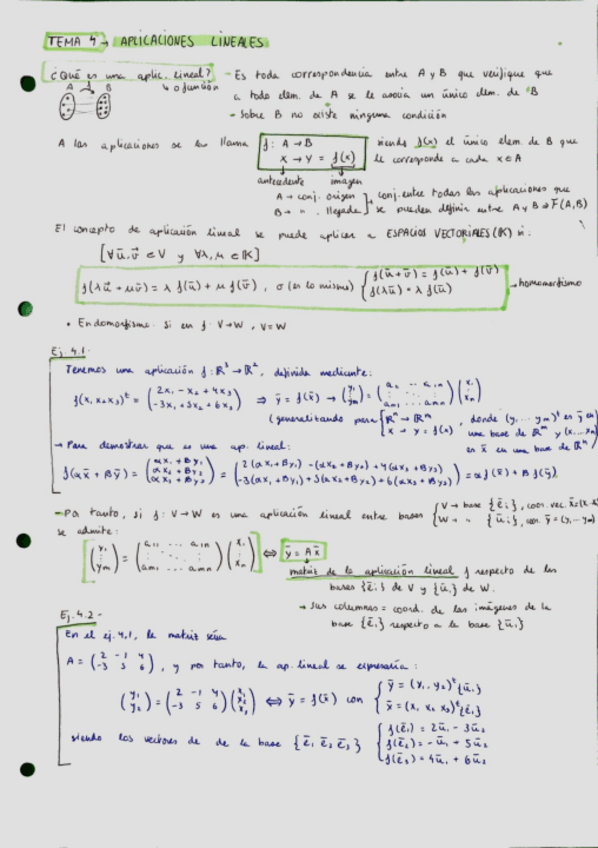 TEMA 4 → APLICACIONES LINEALES
¿Qué es una aplic. lineal? - Es toda correspondencia entre A y B que verifique que
↳ o función
A B
a todo elem. de A se le asocia un único elem. de B
- Sobre B no existe ninguna condición
A las aplicaciones se las llama f: A → B siendo f(x) el único elem. de B que
x → y = f(x) le corresponde a cada x ∈ A
antecedente imagen
A → conj. origen conj. entre todas las aplicaciones que
B → " . llegada se pueden definir entre A y B ⇒ F(A,B)
El concepto de aplicación lineal se puede aplicar a ESPACIOS VECTORIALES (K) si:
[∀ū,v̄ ∈ V y ∀λ,μ ∈ K]
f(λū + μv̄) = λ f(ū) + μ f(v̄), o (es lo mismo) { f(ū+v̄) = f(ū) + f(v̄)
f(λū) = λ f(ū) → homomorfismo
• Endomorfismo: si en f: V→W, V=W
Ej. 4.1-
Tenemos una aplicación f: R³ → R², definida mediante:
f(x₁ x₂ x₃)ᵗ = (2x₁ - x₂ + 4x₃
-3x₁ + 5x₂ + 6x₃) ⇒ ȳ = f(x̄) → (y₁ ym) = (a₁₁ ... a₁n
am₁ ... amn) (x₁ xn)
(generalizando para { Rⁿ → Rᵐ , donde (y₁ ... ym)ᵗ es ȳ en
x → y = f(x) una base de Rᵐ y (x₁...xn)
es x̄ en una base de Rⁿ)
→ Para demostrar que es una ap. lineal:
f(αx̄ + βȳ) = (αx₁ + βy₁
αx₂ + βy₂
αx₃ + βy₃) = (2(αx₁ + βy₁) - (αx₂ + βy₂) + 4(αx₃ + βy₃)
-3(αx₁ + βy₁) + 5(αx₂ + βy₂) + 6(αx₃ + βy₃)) = αf(x̄) + βf(ȳ).
- Por tanto, si f: V→W es una aplicación lineal entre bases { V → base {ēi}, coor. vec. x̄ = (x
W → " {ūi}, coor. ȳ = (y₁ ... ym)
se admite:
(y₁ ⋮ ym) = (a₁₁ ... a₁n
am₁ ... amn) (x₁ ⋮ xn) ⇔ ȳ = A x̄
matriz de la aplicación lineal f respecto de las
bases {ēi} de V y {ūi} de W.
→ Sus columnas = coord. de las imágenes de la
base {ēi} respecto a la base {ūi}
Ej. 4.2-
En el ej. 4.1, la matriz sería
A = (2 -1 4
-3 5 6), y por tanto, la ap. lineal se expresaría:
(y₁
y₂) = (2 -1 4
-3 5 6) (x₁
x₂
x₃) ⇔ ȳ = f(x̄) con { ȳ = (y₁, y₂)ᵗ {ūi}
x̄ = (x₁ x₂ x₃)ᵗ {ēi}
siendo los vectores de de la base {ē₁ ē₂ ē₃} { f(ē₁) = 2ū₁ - 3ū₂
f(ē₂) = -ū₁ + 5ū₂
f(ē₃) = 4ū₁ + 6ū₂